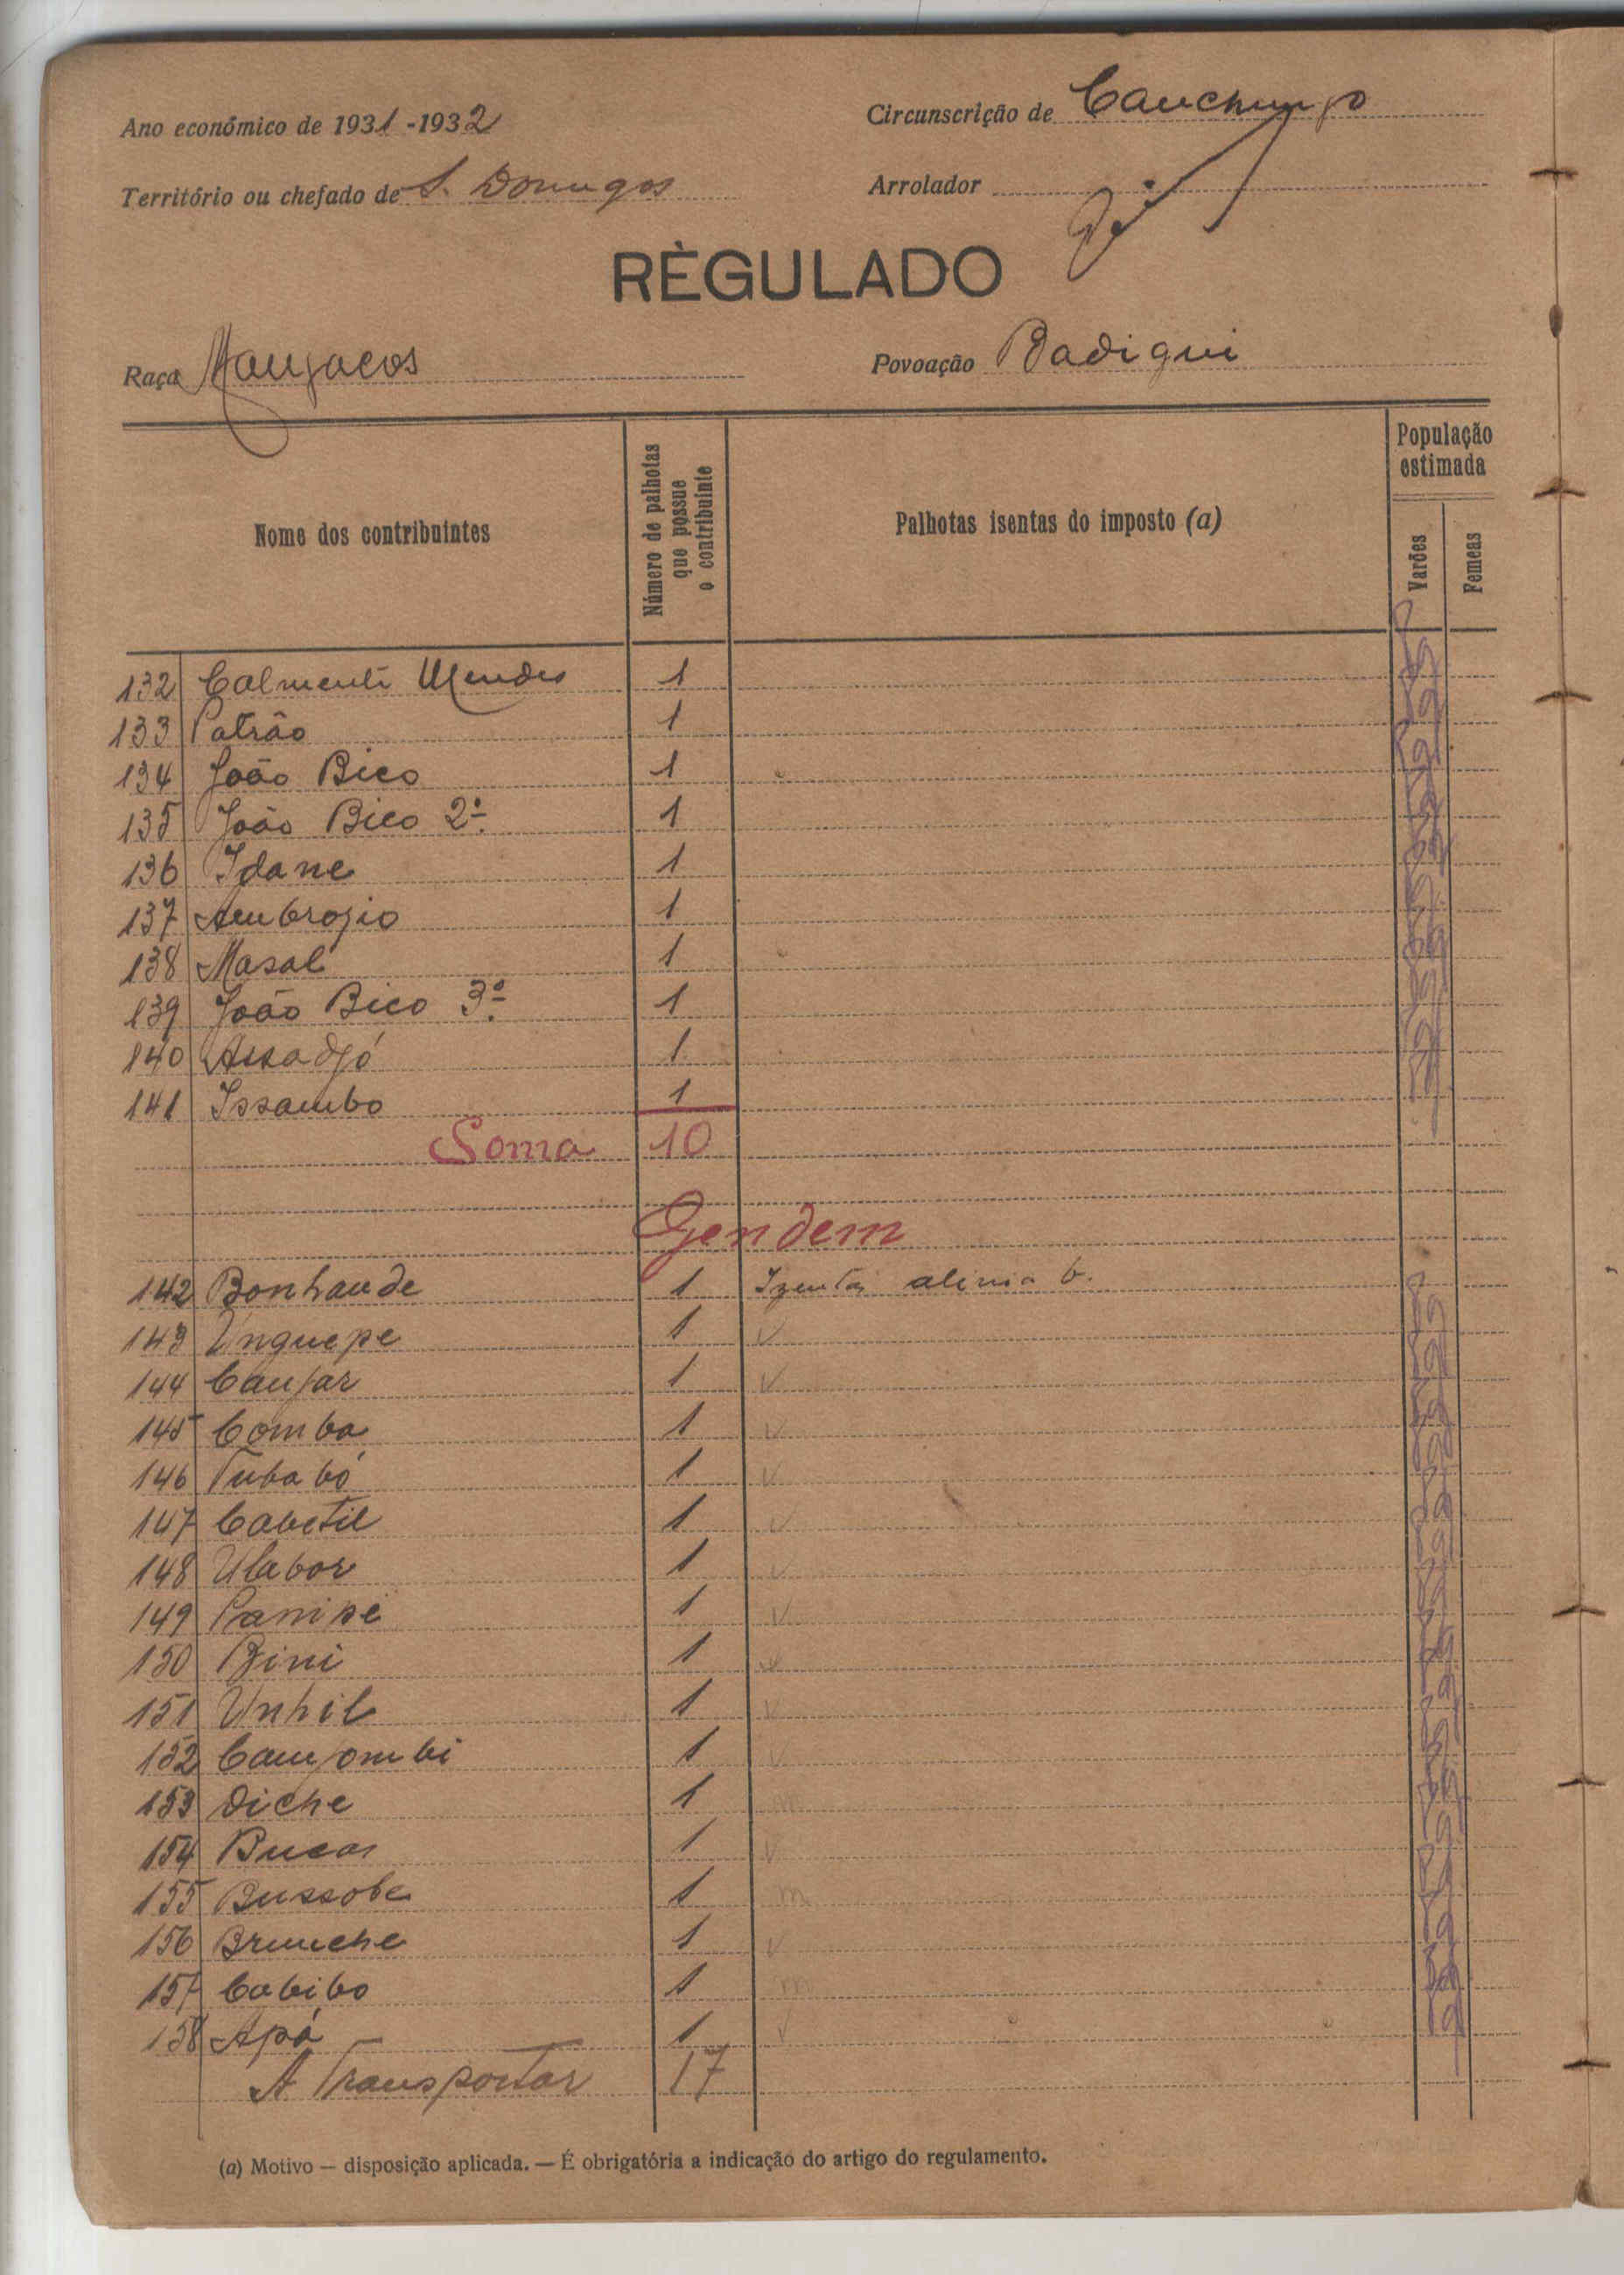 Ano económico de 1931-1932
Circunscrição de Canchungo
Território ou chefado de S. Domingos
Arrolador
RÈGULADO
Raça Manjacos
Povoação Badiqui
Nome dos contribuintes
Número de palhotas que possue o contribuinte
Palhotas isentas do imposto (a)
População estimada
Varões
Femeas
132 Calmenti Mendes 1
133 Patrão 1
134 João Bico 1
135 João Bico 2º 1
136 Idane 1
137 Ambrosio 1
138 Masal 1
139 João Bico 3º 1
140 Assadjó 1
141 Issambo 1
Soma 10
Gendem
142 Bonhande 1 Izenta alinia b.
143 Unguepe 1
144 Canjar 1
145 Comba 1
146 Tubabó 1
147 Cabetil 1
148 Ulabor 1
149 Panipé 1
150 Bini 1
151 Unhil 1
152 Canjombi 1
153 Diche 1
154 Bucar 1
155 Bussobe 1
156 Brunche 1
157 Cabibo 1
158 Apá 1
A Transportar 17
(a) Motivo — disposição aplicada. — É obrigatória a indicação do artigo do regulamento.